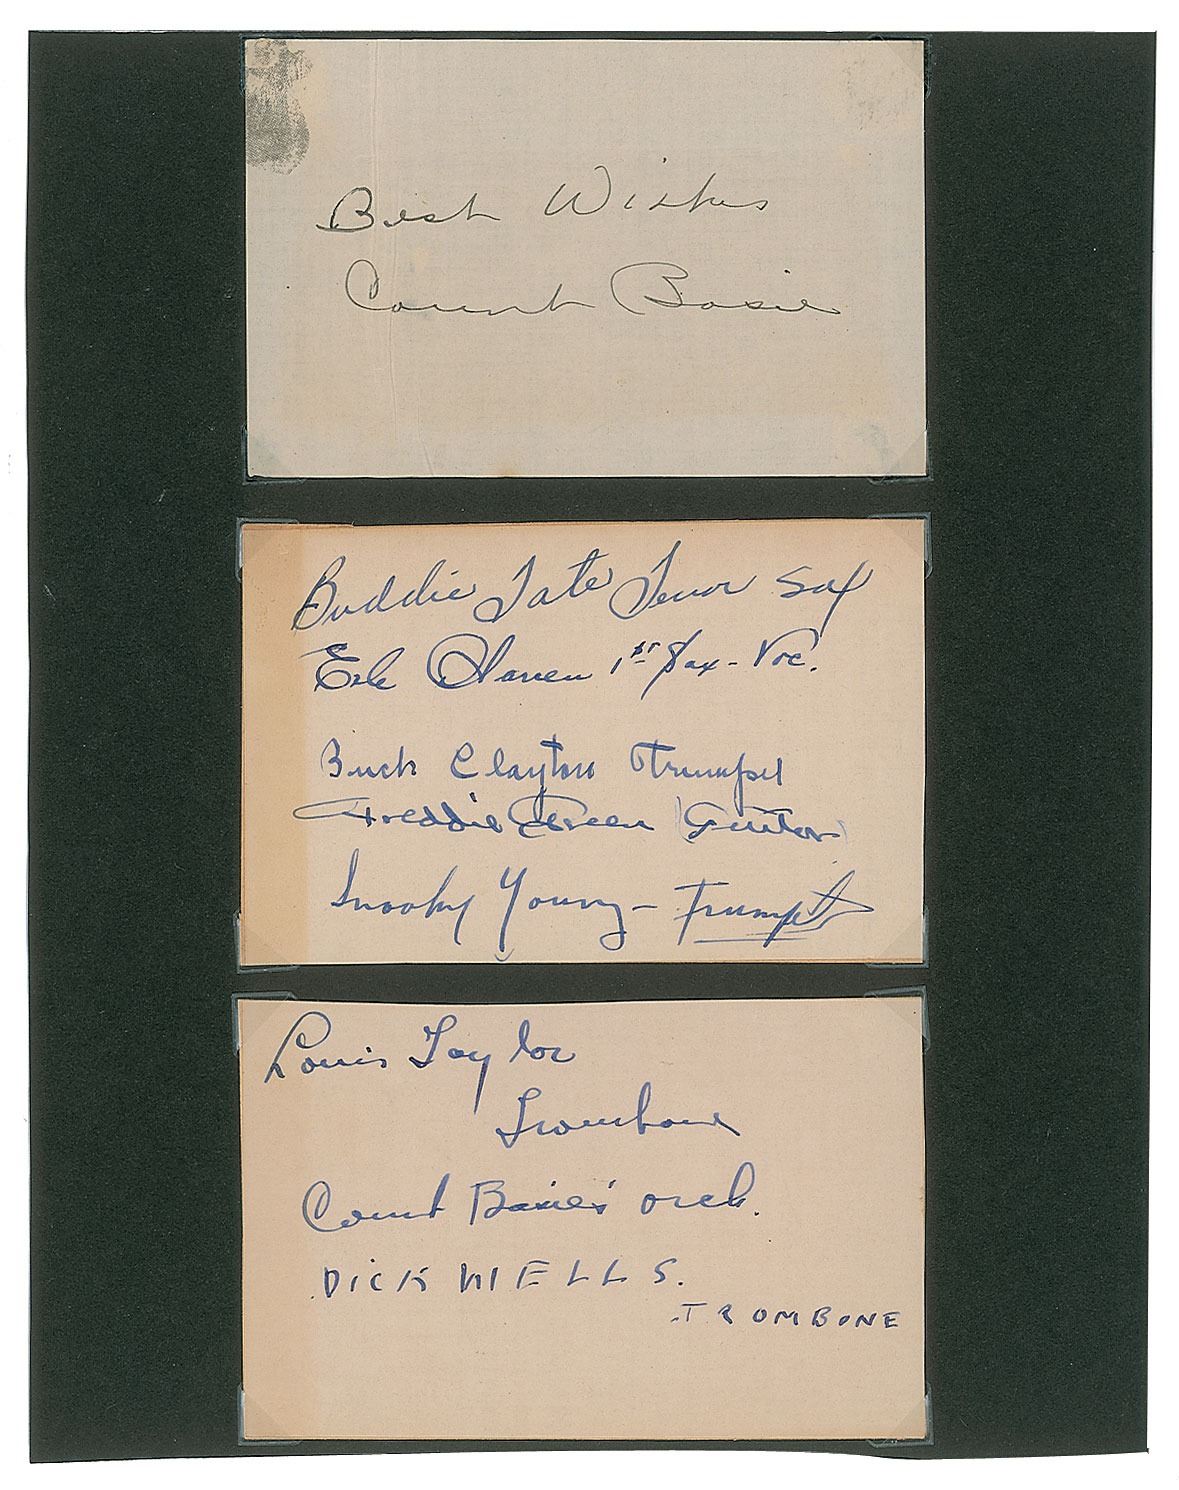 Best Wishes
Count Basie
Buddie Tate Tenor Sax
Earle Warren 1st Sax - Voc.
Buck Clayton Trumpet
Freddie Green Guitar
Snooky Young - Trumpet
Louis Taylor
Trombone
Count Basie's orch.
DICK WELLS.
TROMBONE